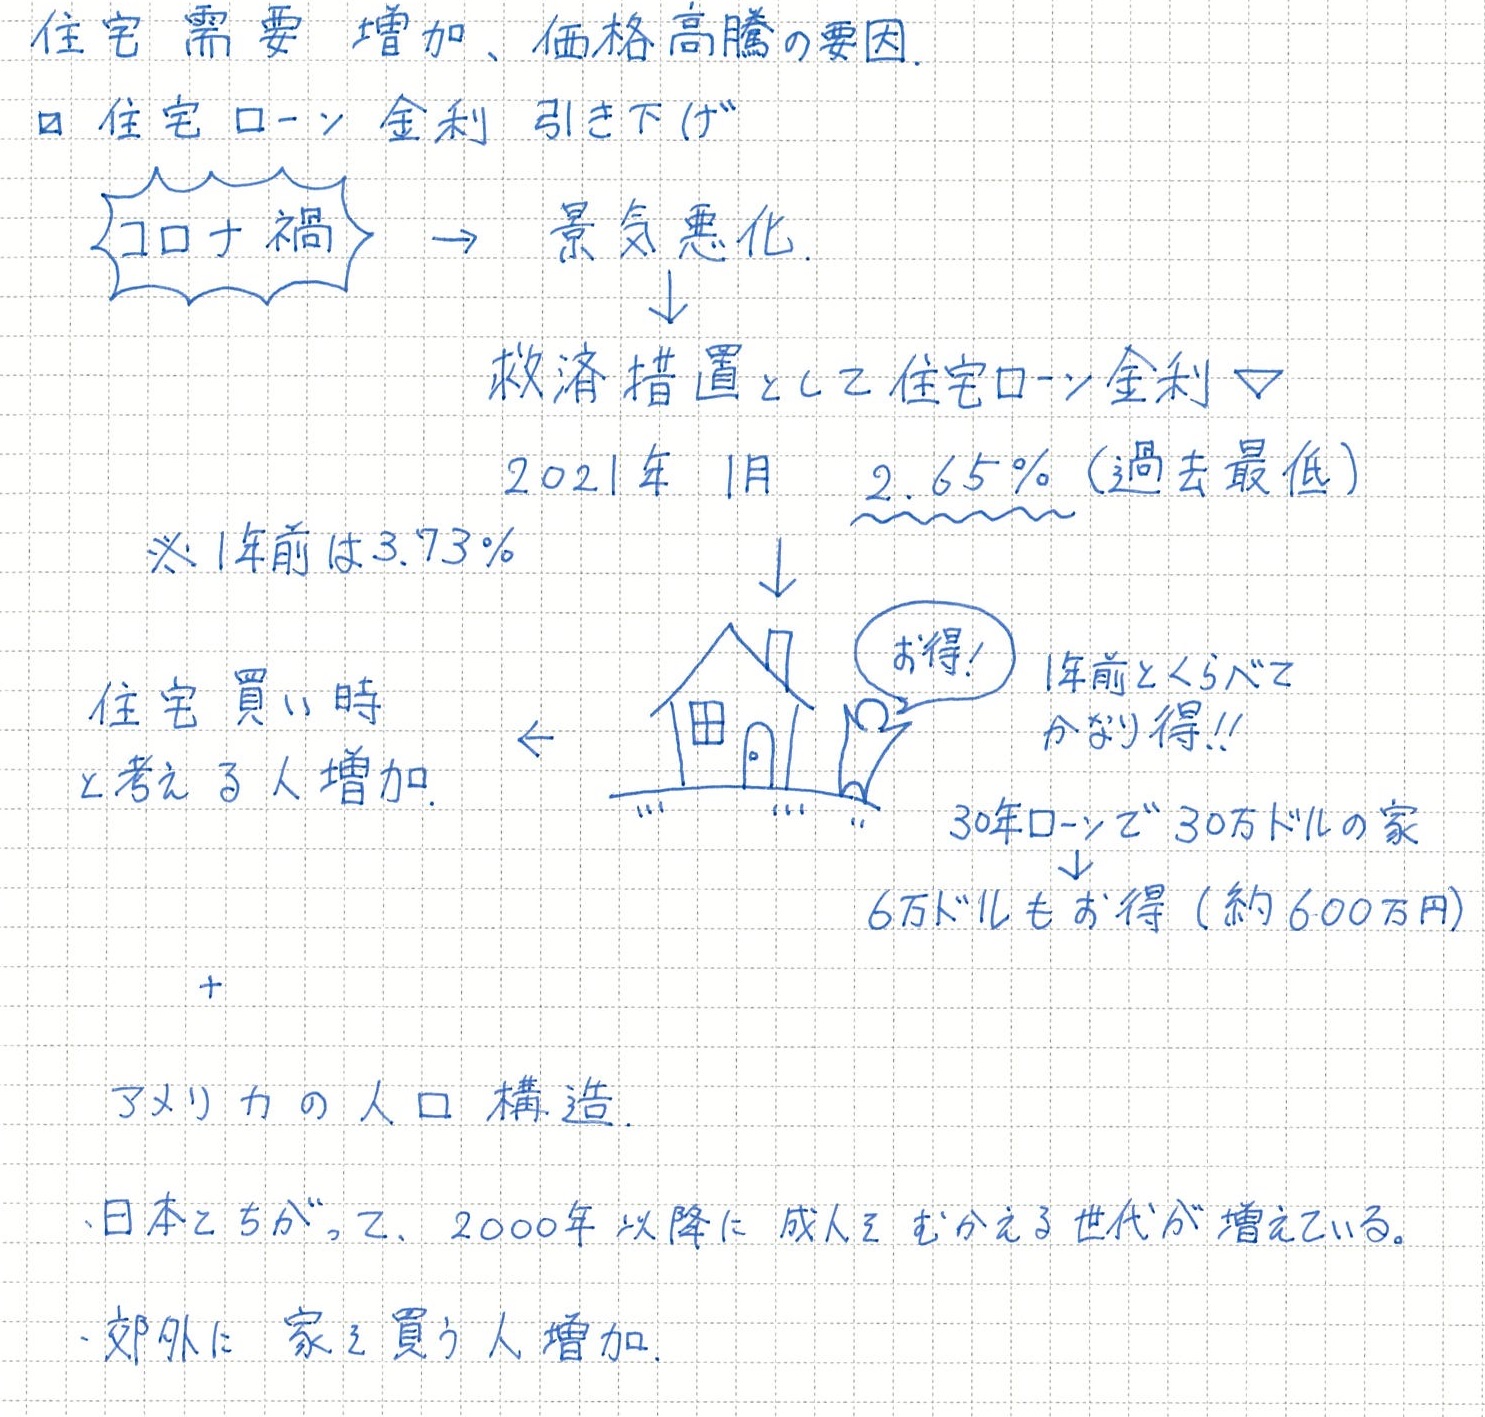 住宅 需要 増加、価格高騰の要因.
ロ 住宅 ローン 金利 引き下げ
コロナ禍 → 景気悪化.
↓
救済措置として住宅ローン金利▽
2021年 1月 2.65% (過去最低)
※1年前は3.73%
↓
お得!
1年前とくらべて
かなり得!!
住宅買い時 ←
と考える人増加.
30年ローンで 30万ドルの家
↓
6万ドルもお得 (約600万円)
+
アメリカの人口構造.
・日本とちがって、2000年以降に 成人をむかえる世代が増えている。
・郊外に 家を買う人増加.